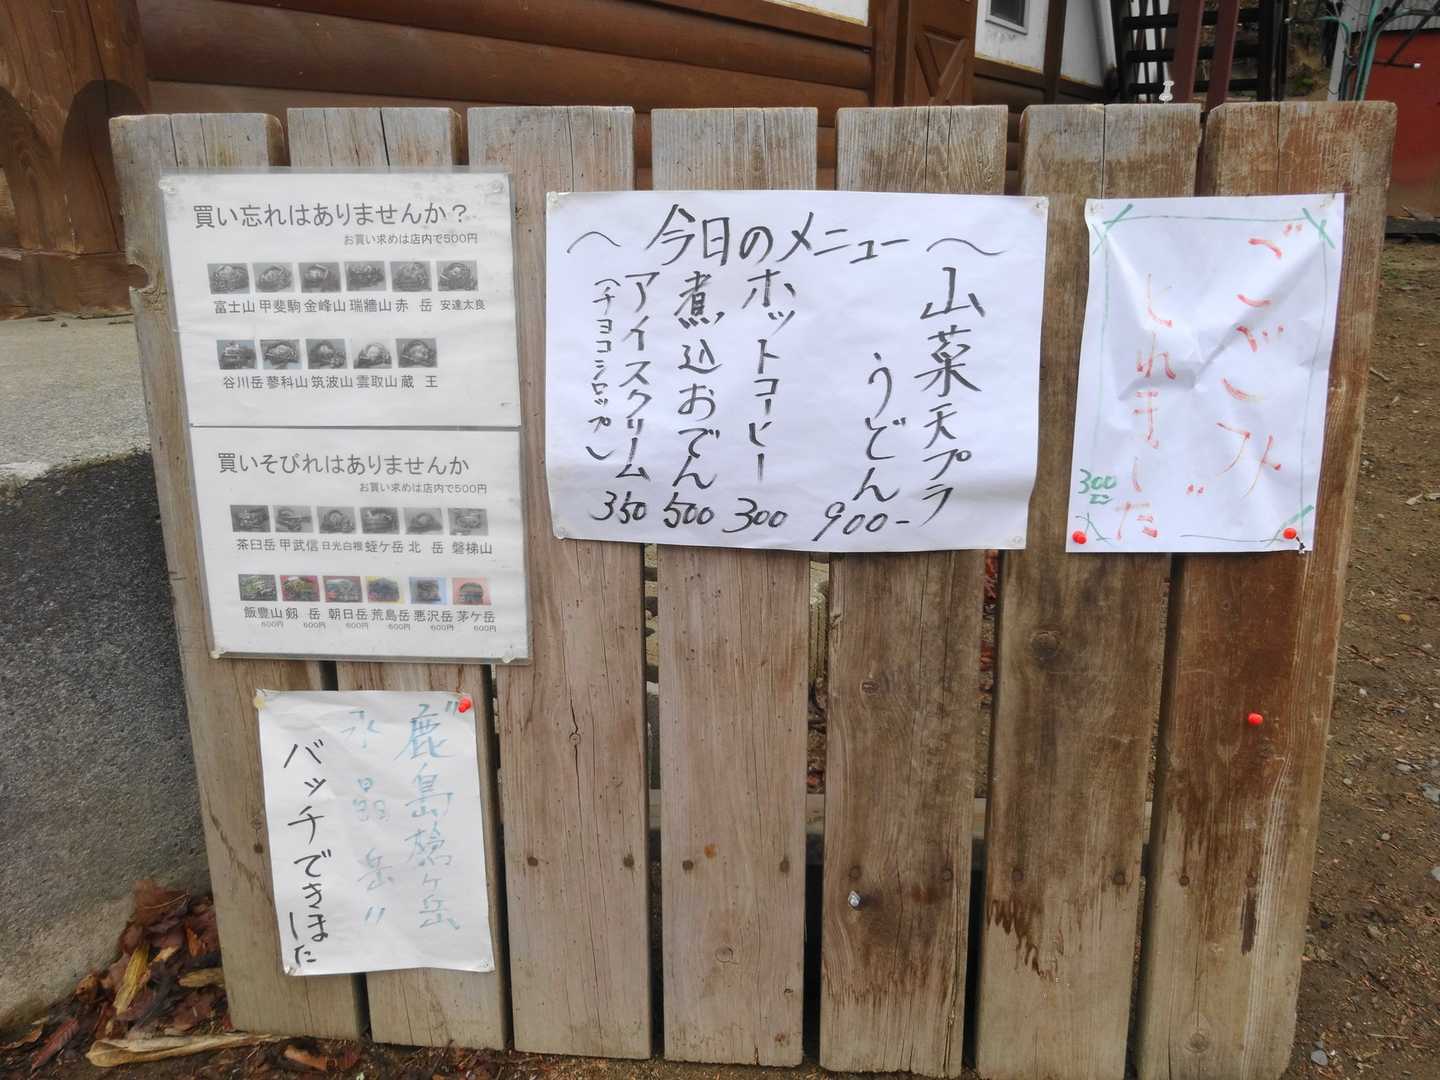 買い忘れはありませんか？
お買い求めは店内で500円
富士山 甲斐駒 金峰山 瑞牆山 赤 岳 安達太良
谷川岳 蓼科山 筑波山 雲取山 蔵 王
買いそびれはありませんか
お買い求めは店内で500円
茶臼岳 甲武信 日光白根 蛭ケ岳 北 岳 磐梯山
飯豊山 剱 岳 朝日岳 荒島岳 悪沢岳 茅ケ岳
600円 600円 600円 600円 600円 600円
〜今日のメニュー〜
山菜天プラ
うどん 900-
ホットコーヒー 300
煮込おでん 500
アイスクリーム 350
(チョコシロップ)
ごごみ
とれました
300
"鹿島槍ヶ岳
水晶岳"
バッチできました